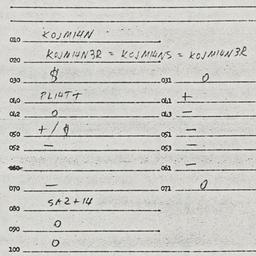 010 KOJMI4N
020 KOJMI4N3R = KOJMI4NS = KOJMI4N3R
030 $ 031 0
040 PLI4T+ 041 +
042 0 043 —
050 +/$ 051 —
052 — 053 —
060 061 —
070 — 071 0
080 SA2+14
090 0
100 0